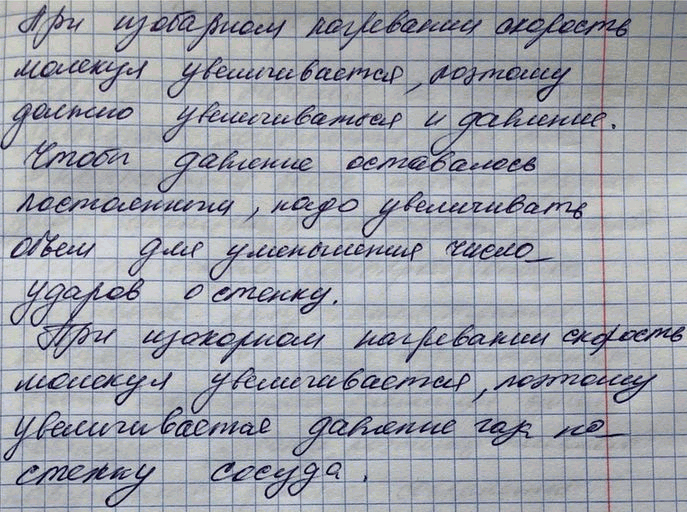 При изобарном нагревании скорость
молекул увеличивается, поэтому
должно увеличиваться и давление.
Чтобы давление оставалось
постоянным, надо увеличивать
объем для уменьшения числа
ударов о стенку.
При изохорном нагревании скорость
молекул увеличивается, поэтому
увеличивается давление газ на
стенку сосуда.